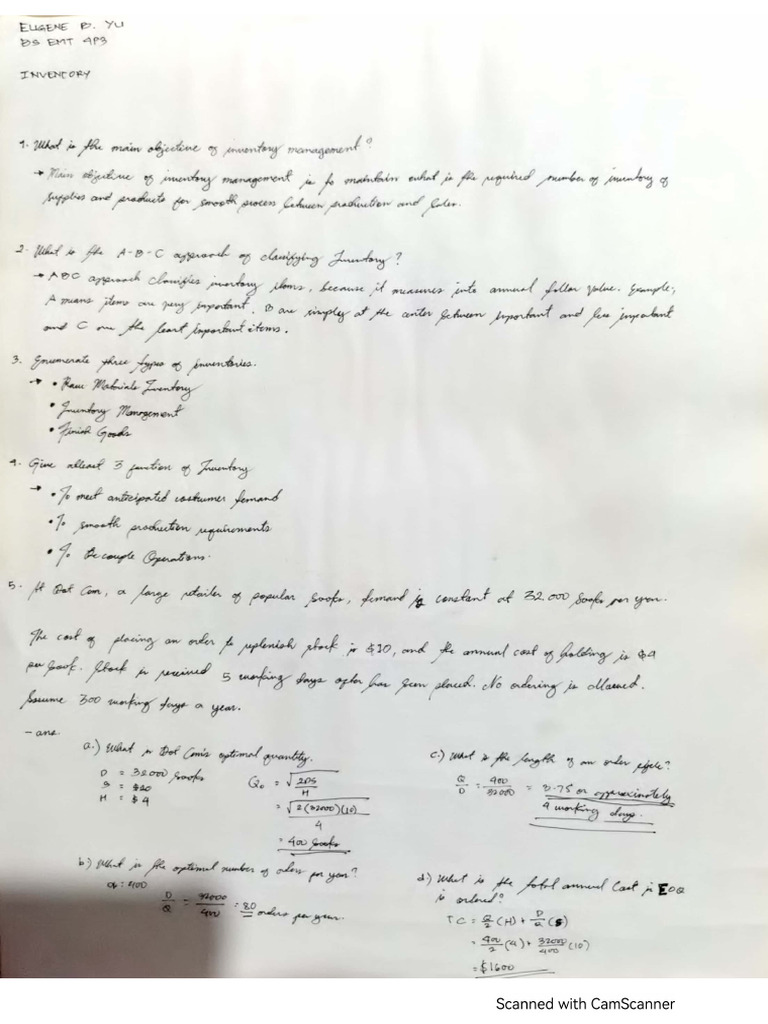 EUGENE B. YU
BS EMT 4P3
INVENTORY
1. What is the main objective of inventory management?
→ Main objective of inventory management is to maintain what is the required number of inventory of
supplies and products for smooth process between production and
2. What is the A-B-C approach of classifying Inventory?
→ ABC approach classifies inventory items, because it measures into annual dollar value. Example,
A means items are very important, B are simply at the center between important and less important
and C are the least important items.
3. Enumerate three types of inventories.
→ • Raw Materials Inventory
• Inventory Management
• Finish Goods
4. Give atleast 3 function of Inventory
→ • To meet anticipated costumer demand
• To smooth production requirements
• To De couple Operations.
5. At Dot Com, a large retailer of popular books, demand is constant at 32 000 books per year.
The cost of placing an order to replenish stock is $10, and the annual cost of holding is $4
per book. Stock is received 5 working days after has been placed. No ordering is allowed.
Assume 300 working days a year.
- ans.
a.) What is Dot Com's optimal quantity.
D = 32000 books
S = $10
H = $4
Q₀ = √2DS/H
= √2(32000)(10)/4
= 400 books
b.) What is the optimal number of orders per year?
: 400
D/Q = 32000/400 = 80 orders per year.
c.) What is the length of an order cycle?
Q/D = 400/32000 = 3.75 or approximately
4 working days.
d.) What is the total annual Cost if EOQ
is ordered?
TC = Q/2 (H) + D/Q (S)
= 400/2 (4) + 32000/400 (10)
= $1600
Scanned with CamScanner